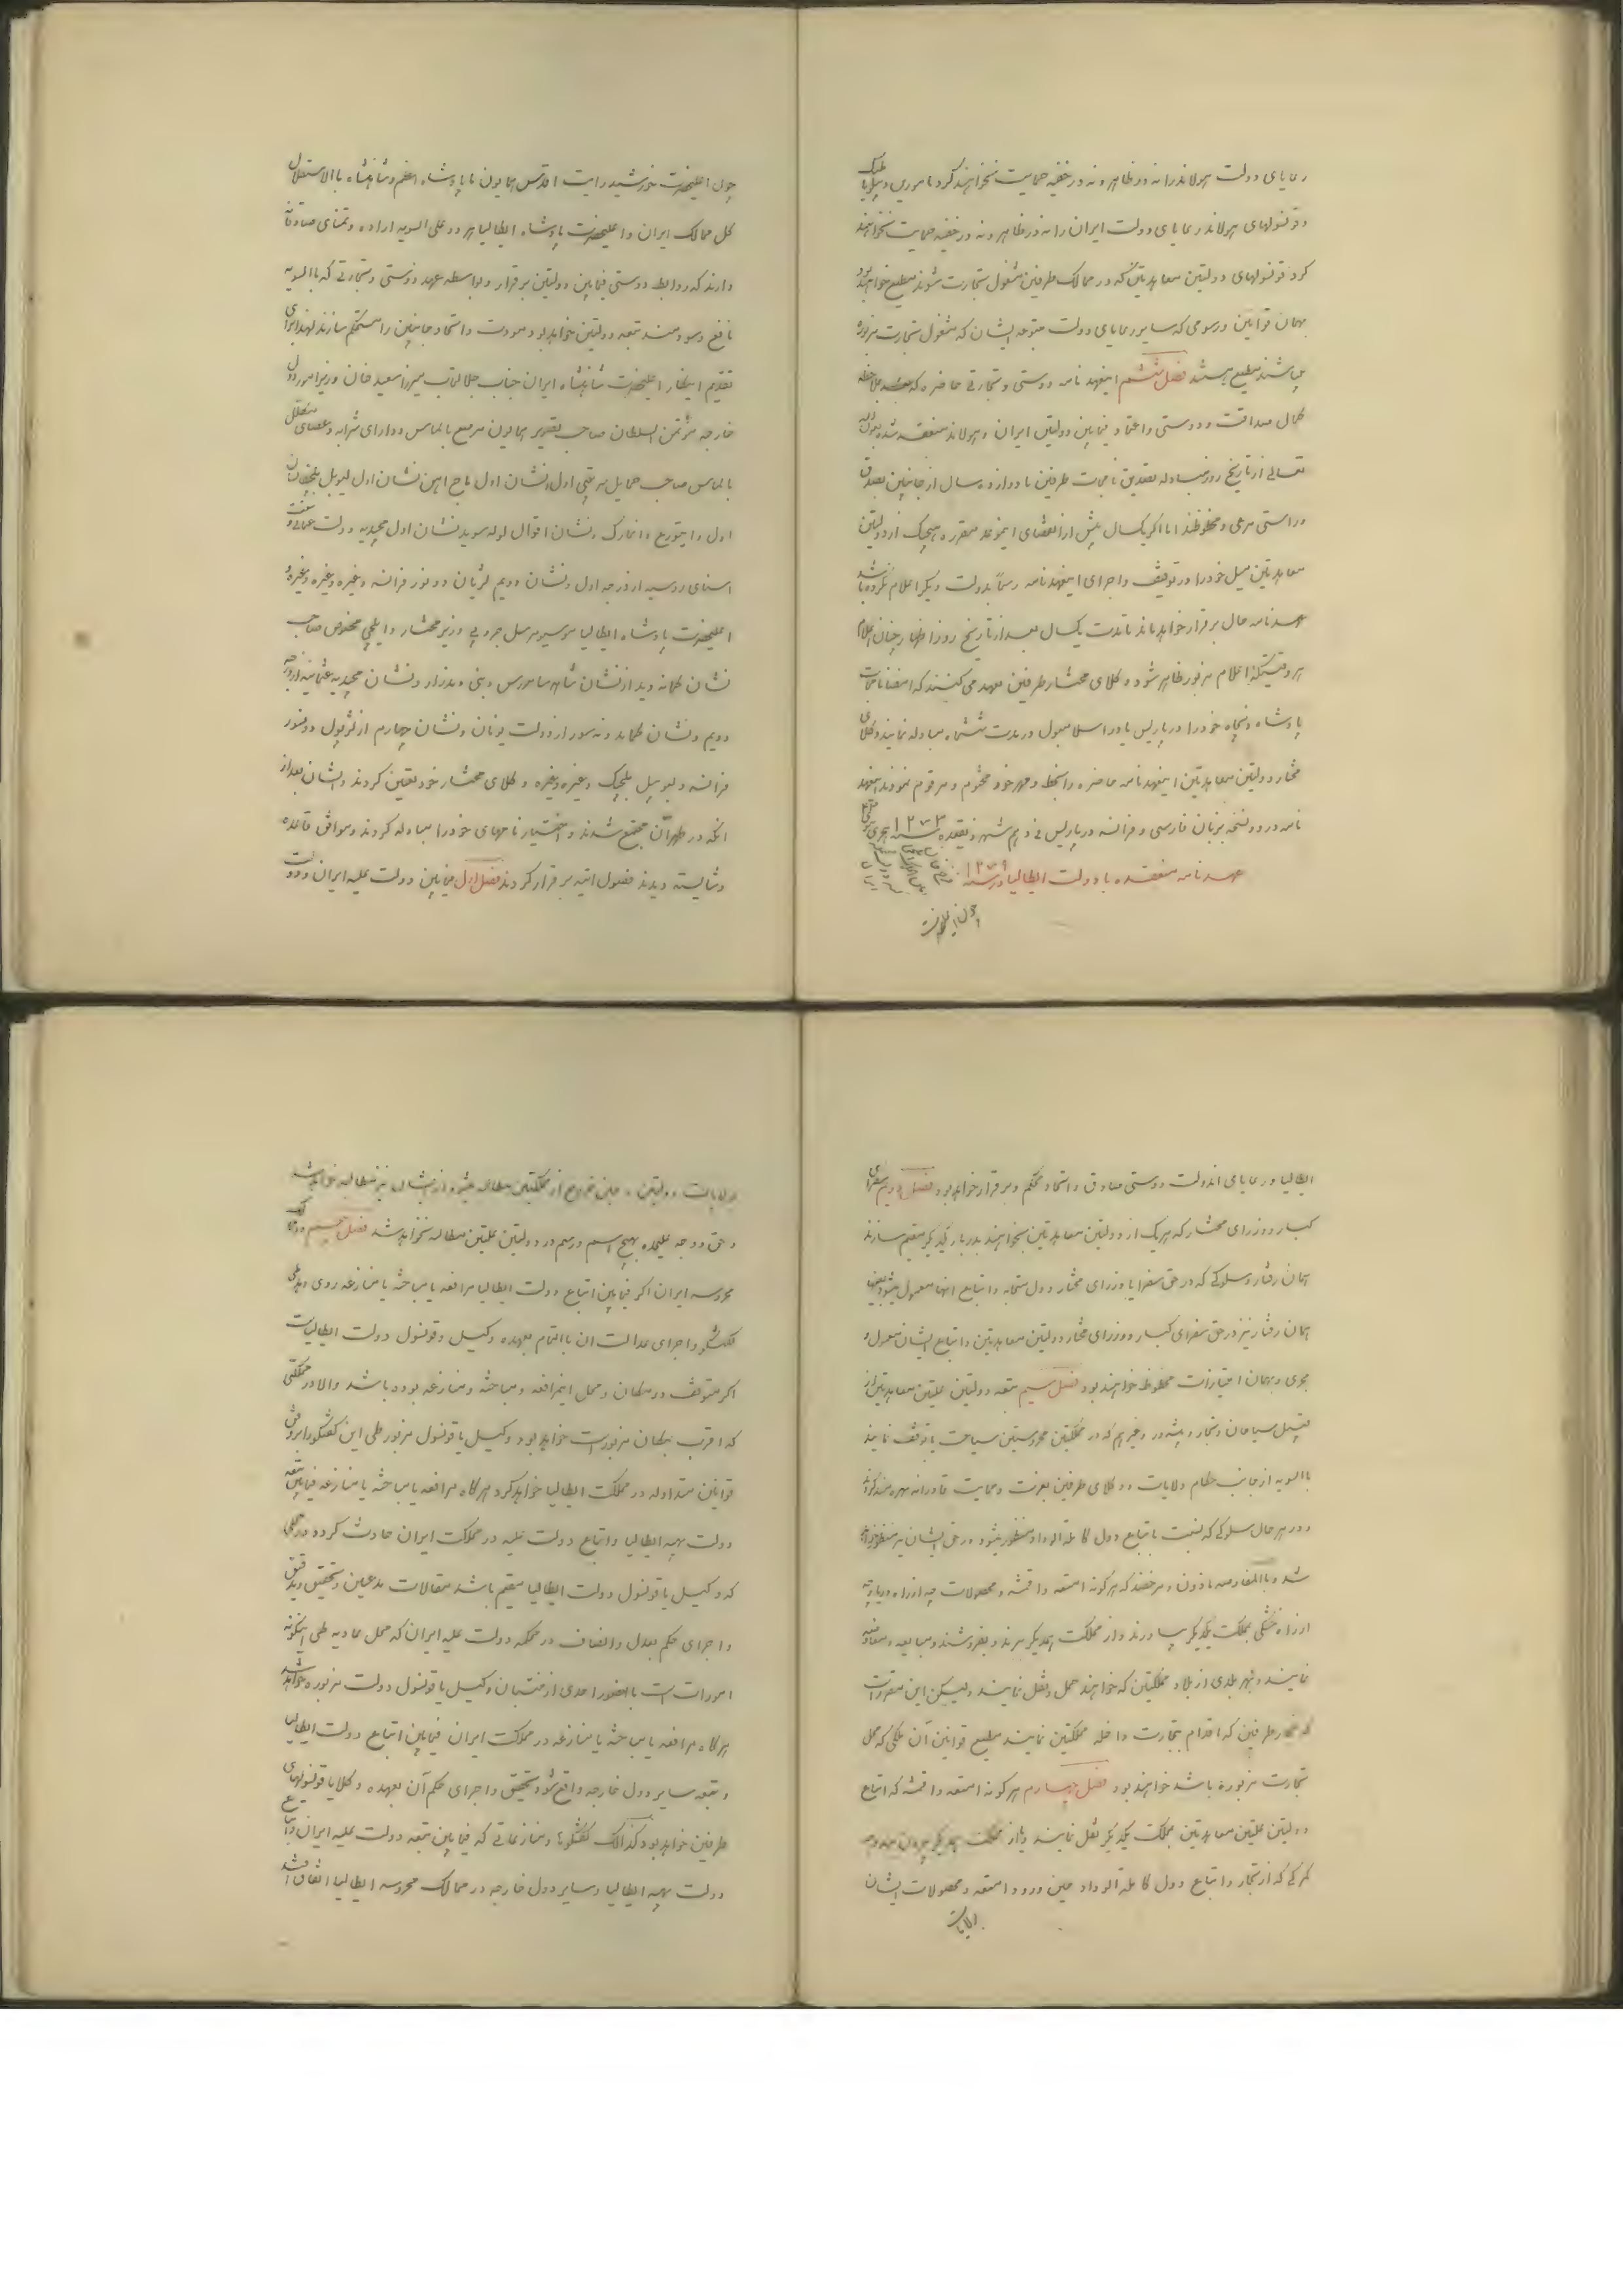 رعایای دولت هولاند را نه در ظاهر و نه در خفیه حمایت نخواهند کرد مامورین دیپلماتیک
و قونسولهای هولاند رعایای دولت ایران را نه در ظاهر و نه در خفیه حمایت نخواهند
کرد قونسولهای دولتین معاهدتین که در ممالک طرفین مشغول تجارت شوند مطیع خواهند بود
بهمان قوانین و رسومی که سایر رعایای دولت متبوعه ایشان که مشغول تجارت مزبوره
میباشند مطیع هستند فصل ششم اینعهدنامه دوستی و تجارتی حاضره که بملاحظه
کمال صداقت و دوستی و اعتماد فیمابین دولتین ایران و هولاند منعقد شده بعون الله
تعالی از تاریخ روز مبادله تصدیق نامجات طرفین تا دوازده سال از جانبین بصدق
و راستی مرعی و محفوظند اما اگر یکسال پیش از انقضای اینوعده مقرره هیچیک از دولتین
معاهدتین میل خود را در توقیف و اجرای اینعهدنامه رسماً بدولت دیگر اعلام نکرده باشد
عهدنامه حال برقرار خواهد ماند تا مدت یکسال بعد از تاریخ روز اظهار چنان اعلام
هر وقتیکه اعلام مزبور ظاهر شود وکلای مختار طرفین تعهد می کنند که امضانامجات
پادشاه ذیجاه خود را در پاریس یا در اسلامبول در مدت ششماه مبادله نمایند وکلای
مختار دولتین معاهدتین اینعهدنامه حاضره را بخط و مهر خود مختوم و مرقوم نمودند اینعهد
نامه در دو نسخه بزبان فارسی و فرانسه در پاریس فی دهم شهر ذیقعده سنه ۱۲۷۳ هجری
عهدنامه منعقده با دولت ایطالیا در سنه ۱۲۷۹
چون اعلیحضرت
چون اعلیحضرت خورشید رایت اقدس همایون ما پادشاه اعظم و شاهنشاه بالاستقلال
کل ممالک ایران و اعلیحضرت پادشاه ایطالیا هر دو علی السویه اراده و تمنای صادقانه
دارند که روابط دوستی فیمابین دولتین برقرار و بواسطه عهد دوستی و تجارتی که بالسویه
نافع و سودمند تبعه دولتین خواهد بود مودت و اتحاد جانبین را مستحکم سازند لهذا برای
تقدیم اینکار اعلیحضرت شاهنشاه ایران جناب جلالتمآب میرزا سعید خان وزیر امور دول
خارجه مؤتمن السلطان صاحب تصویر همایون مرصع بالماس و دارای شرابه و عصای مکلل
بالماس صاحب حمایل مرتبه اول نشان اول تاج آهن نشان اول لیوپل بلجیک نشان
اول دانبروغ دانمارک نشان اول مجیدیه دولت عثمانی
استای روسیه از درجه اول و نشان دویم لژیان دونور فرانسه و غیره و غیره و غیره و
اعلیحضرت پادشاه ایطالیا موسیو مرسل چروتی وزیر مختار و ایلچی مخصوص صاحب
نشان از نشان و نشان مجیدیه عثمانیه از درجه
دویم و نشان از دولت یونان و نشان چهارم از لژیون دونور
فرانسه و لیوپل بلجیک و غیره و غیره وکلای مختار خود تعیین کردند و ایشان بعد از
آنکه در طهران مجتمع شدند و اختیار نامهای خود را مبادله کردند و موافق قاعده
و شایسته دیدند فصول آتیه برقرار کردند فصل اول فیمابین دولت علیه ایران و دولت
ایطالیا و رعایای آندولت دوستی صادق و اتحاد محکم و برقرار خواهد بود فصل دویم سفرای
کبار و وزرای مختار که هر یک از دولتین معاهدتین بخواهند بدربار یکدیگر مقیم سازند
همان رفتار و سلوکی که در حق سفرا یا وزرای مختار دول متحابه و اتباع آنها معمول میشود بعینها
همان رفتار نیز در حق سفرای کبار و وزرای مختار دولتین معاهدتین و اتباع ایشان معمول و
مجری و بهمان امتیازات محظوظ خواهند بود فصل سیم تبعه دولتین علیتین معاهدتین از
قبیل سیاحان و تجار و پیشه ور و غیرهم که در مملکتین محروستین سیاحت یا توقف نمایند
بالسویه از جانب حکام ولایات و وکلای طرفین بعزت و حمایت قادرانه بهره مند گردند
و در هر حال سلوکی که نسبت باتباع دول کاملة الوداد منظور میشود در حق ایشان نیز منظور خواهد
شد و بالمعاوضه ماذون و مرخصند که هر گونه امتعه و اقمشه و محصولات چه از راه دریا و چه
از راه خشکی بمملکت یکدیگر بیاورند و از مملکت یکدیگر ببرند و بفروشند و مبایعه و معاوضه
نمایند و بهر بلدی از بلاد مملکتین که خواهند حمل و نقل نمایند ولیکن این مقررات
که تجار طرفین که اقدام بتجارت داخله مملکتین نمایند مطیع قوانین آن ملکی که محل
تجارت مزبوره باشد خواهند بود فصل چهارم هر گونه امتعه و اقمشه که اتباع
دولتین علیتین معاهدتین بمملکت یکدیگر نقل نمایند و از مملکت یکدیگر بیرون
گمرکی که از تجار و اتباع دول کاملة الوداد حین ورود امتعه و محصولات ایشان
بولایات
بولایات دولتین و حین خروج از مملکتین مطالبه میشود از ایشان نیز مطالبه خواهد شد
و حق و وجه علیحده بهیچ اسم و رسم در دولتین علیتین مطالبه نخواهد شد فصل پنجم در ممالک
محروسه ایران اگر فیمابین اتباع دولت ایطالیا مرافعه یا مباحثه یا منازعه روی دهد طی
گفتگو و اجرای عدالت آن بالتمام بعهده وکیل و قونسول دولت ایطالیاست
اگر متوقف در مکان و محل اینمرافعه و مباحثه و منازعه بوده باشد والا در مملکتی
که اقرب بمکان مزبور است خواهد بود وکیل یا قونسول مزبور طی این گفتگو را بر وفق
قوانین متداوله در مملکت ایطالیا خواهد کرد هرگاه مرافعه یا مباحثه یا منازعه فیمابین تبعه
دولت بهیه ایطالیا و اتباع دولت علیه در مملکت ایران حادث گردد در محلی
که وکیل یا قونسول دولت ایطالیا مقیم باشد مقالات مدعیین و تحقیق و تدقیق
و اجرای حکم بعدل و انصاف در محکمه دولت علیه ایران که محل عادیه طی اینگونه
امورات است با حضور احدی از منتسبان وکیل یا قونسول دولت مزبوره خواهد شد
هرگاه مرافعه یا مباحثه یا منازعه در مملکت ایران فیمابین اتباع دولت ایطالیا
و تبعه سایر دول خارجه واقع شود تحقیق و اجرای حکم آن بعهده وکلا یا قونسولهای
طرفین خواهد بود کذلک گفتگوها و منازعاتی که فیمابین تبعه دولت علیه ایران و اتباع
دولت بهیه ایطالیا و سایر دول خارجه در ممالک محروسه ایطالیا اتفاق افتد